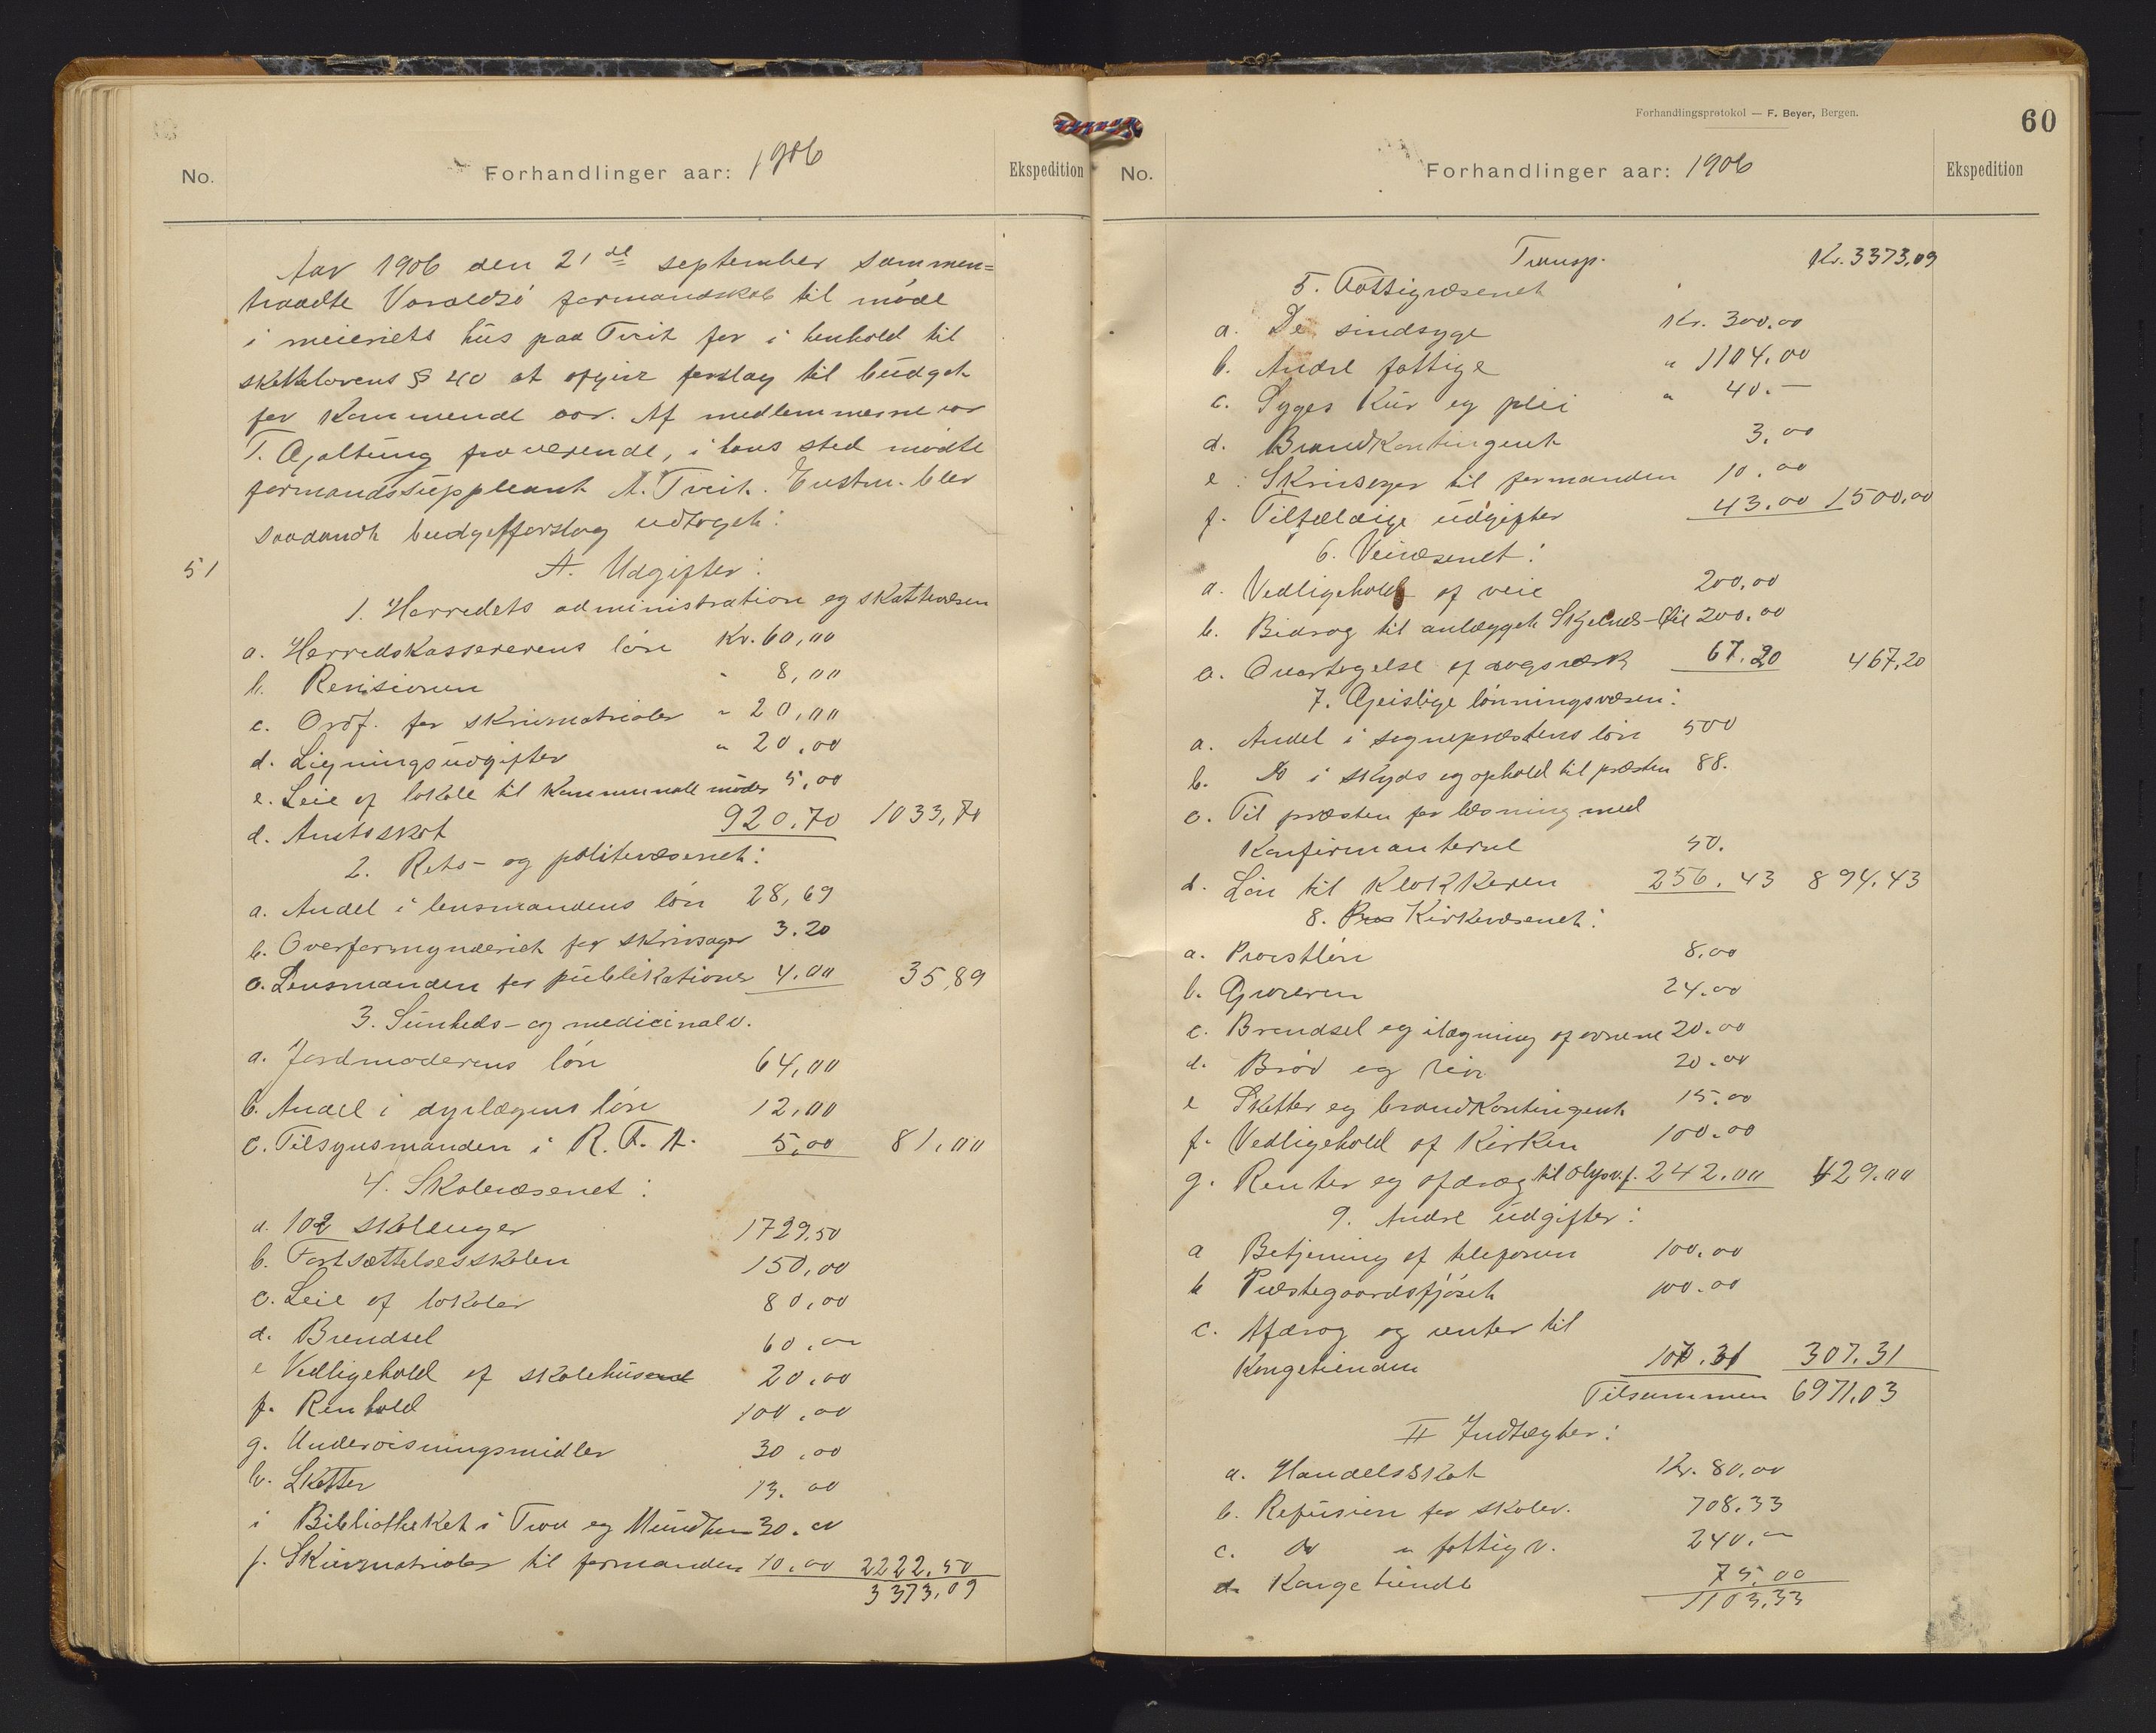 No.
Forhandlinger aar: 1906
Ekspedition
Aar 1906 den 21de september sammen=
traadte Varaldsö formandskab til møde
i meieriets hus paa Tveit for i henhold til
skattelovens § 40 at afgive forslag til budget
for kommende aar. Af medlemmerne var
T. Gjaltung fraværende, i hans sted mødte
formandssuppleant A. Tveit. Enstm. blev
saadandt budgetforslag udtaget:
51
A. Udgifter:
1. Herredets administration og skattevæsen
a. Herredskassererens løn Kr. 60,00
b. Revisionen " 8,00
c. Ordf. for skrivmatrialer " 20,00
d. Ligningsudgifter " 20,00
e. Leie af lokale til kommunale møder 5,00
d. Amtsskat 920.70 1033,70
2. Rets- og politivæsenet:
a. Andel i lensmandens løn 28,69
b. Overformynderiet for skrivsager 3.20
c. Lensmanden for publikationer 4.00 35,89
3. Sunheds- og medicinalv.
a. Jordmoderens løn 64,00
b. Andel i dyrlægens løn 12,00
c. Tilsynsmanden i R. F. A. 5,00 81,00
4. Skolevæsenet:
a. 102 skoleuger 1729.50
b. Fortsættelsesskolen 150,00
c. Leie af lokaler 80,00
d. Brendsel 60,00
e Vedligehold af skolehusene 20,00
f. Renhold 100,00
g. Undervisningsmidler 30,00
h. Skatter 13.00
i Bibliotheket i og Mundheim 30.00
j. Skrivmatrialer til formanden 10.00 2222.50
3373,09
Forhandlingsprotokol — F. Beyer, Bergen.
60
No.
Forhandlinger aar: 1906
Ekspedition
Transp. Kr. 3373,09
5. Fattigvæsenet
a. De sindsyge Kr. 300.00
b. Andre fattige " 1104.00
c. Syges kur og pleie " 40.—
d. Brandkontingent 3,00
e. Skrivsager til formanden 10.00
f. Tilfældige udgifter 43.00 1500,00
6. Veivæsenet:
a. Vedligehold af veie 200,00
b. Bidrag til anlægget Skjelnes-Øie 200.00
c. Overtagelse af dagsverk 67.20 467,20
7. Geistlige lønningsvæsen:
a. Andel i sognepræstens løn 500
b. Do i skyds og ophold til præsten 88.
c. Til præsten for læsning med
Konfirmanterne 50.
d. Løn til klokkeren 256.43 894.43
8. Pres Kirkevæsenet:
a. Provstløn 8.00
b. Graveren 24.00
c. Brendsel og ilægning af ovnene 20.00
d. Brød og vin 20.00
e Skatter og brandkontingent 15.00
f. Vedligehold af Kirken 100.00
g. Renter og afdrag til Olysv.f. 242.00 429.00
9. Andre udgifter:
a Betjening af telefonen 100.00
b Præstegaardsfjøset 100.00
c. Afdrag og renter til
Kongetienden 107.31 307.31
Tilsammen 6971.03
II Indtægter:
a. Handelsskat Kr. 80,00
b. Refusion for skolev. 708.33
c. Do " fattigv. 240.—
d. Kongetiende 75.00
1103.33